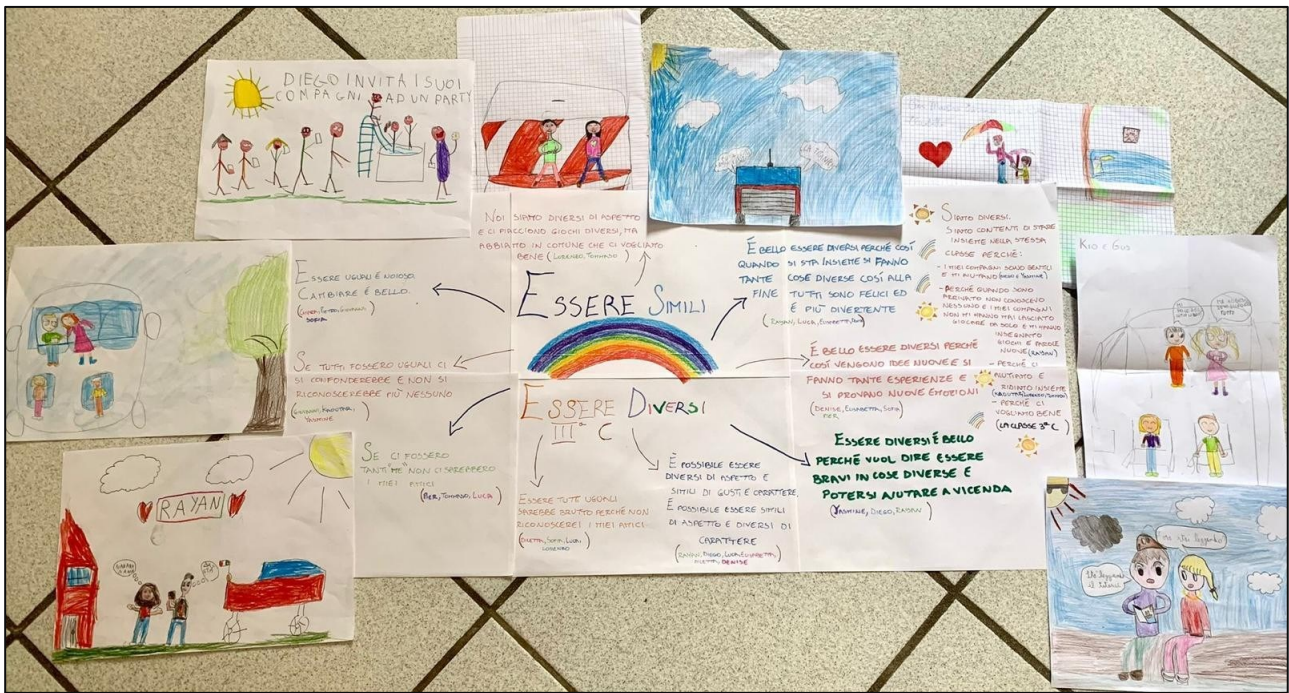 DIEGO INVITA I SUOI
COMPAGNI AD UN PARTY
NOI SIAMO DIVERSI DI ASPETTO
E CI PIACCIONO GIOCHI DIVERSI, MA
ABBIAMO IN COMUNE CHE CI VOGLIAMO
BENE (LORENZO, TOMMASO)
ESSERE UGUALI È NOIOSO.
CAMBIARE È BELLO.
SE TUTTI FOSSERO UGUALI CI
SI CONFONDEREBBE E NON SI
RICONOSCEREBBE PIÙ NESSUNO
YASMINE)
SE CI FOSSERO
TANTI "ME" NON CI SAREBBERO
I MIEI AMICI
(MER, TOMMASO, LUCA)
ESSERE SIMILI
ESSERE DIVERSI
IIIª C
ESSERE TUTE UGUALI
SAREBBE BRUTTO PERCHÉ NON
RICONOSCEREI I MIEI AMICI.
(DILETTA, SOFIA, LUCA,
LORENZO)
È POSSIBILE ESSERE
DIVERSI DI ASPETTO E
SIMILI DI GUSTI E CARATTERE.
È POSSIBILE ESSERE SIMILI
DI ASPETTO E DIVERSI DI
CARATTERE
(RAYAN, DIEGO, LUCA, ELISABETTA,
DILETTA, DENISE)
È BELLO ESSERE DIVERSI PERCHÉ COSÍ
QUANDO SI STA INSIEME SI FANNO
TANTE COSE DIVERSE COSÍ ALLA
FINE TUTTI SONO FELICI ED
È PIÙ DIVERTENTE
È BELLO ESSERE DIVERSI PERCHÉ
COSÍ VENGONO IDEE NUOVE E SI
FANNO TANTE ESPERIENZE E
SI PROVANO NUOVE EMOZIONI
(DENISE, ELISABETTA, SOFIA
MER
ESSERE DIVERSI É BELLO
PERCHÉ VUOL DIRE ESSERE
BRAVI IN COSE DIVERSE E
POTERSI AIUTARE A VICENDA
(YASMINE, DIEGO, RAYAN)
SIAMO DIVERSI.
SIAMO CONTENTI DI STARE
INSIEME NELLA STESSA
CLASSE PERCHÈ:
- I MIEI COMPAGNI SONO GENTILI
E MI AIUTANO
- PERCHÉ QUANDO SONO
ARRIVATO NON CONOSCEVO
NESSUNO E I MIEI COMPAGNI
NON MI HANNO MAI LASCIATO
GIOCARE DA SOLO E MI HANNO
INSEGNATO
GIOCHI E PAROLE
NUOVE (RAYAN)
- PERCHÉ CI
AIUTIAMO E
RIDIAMO INSIEME
- PERCHÉ CI
VOGLIAMO BENE
(LA CLASSE 3ª C)
RAYAN